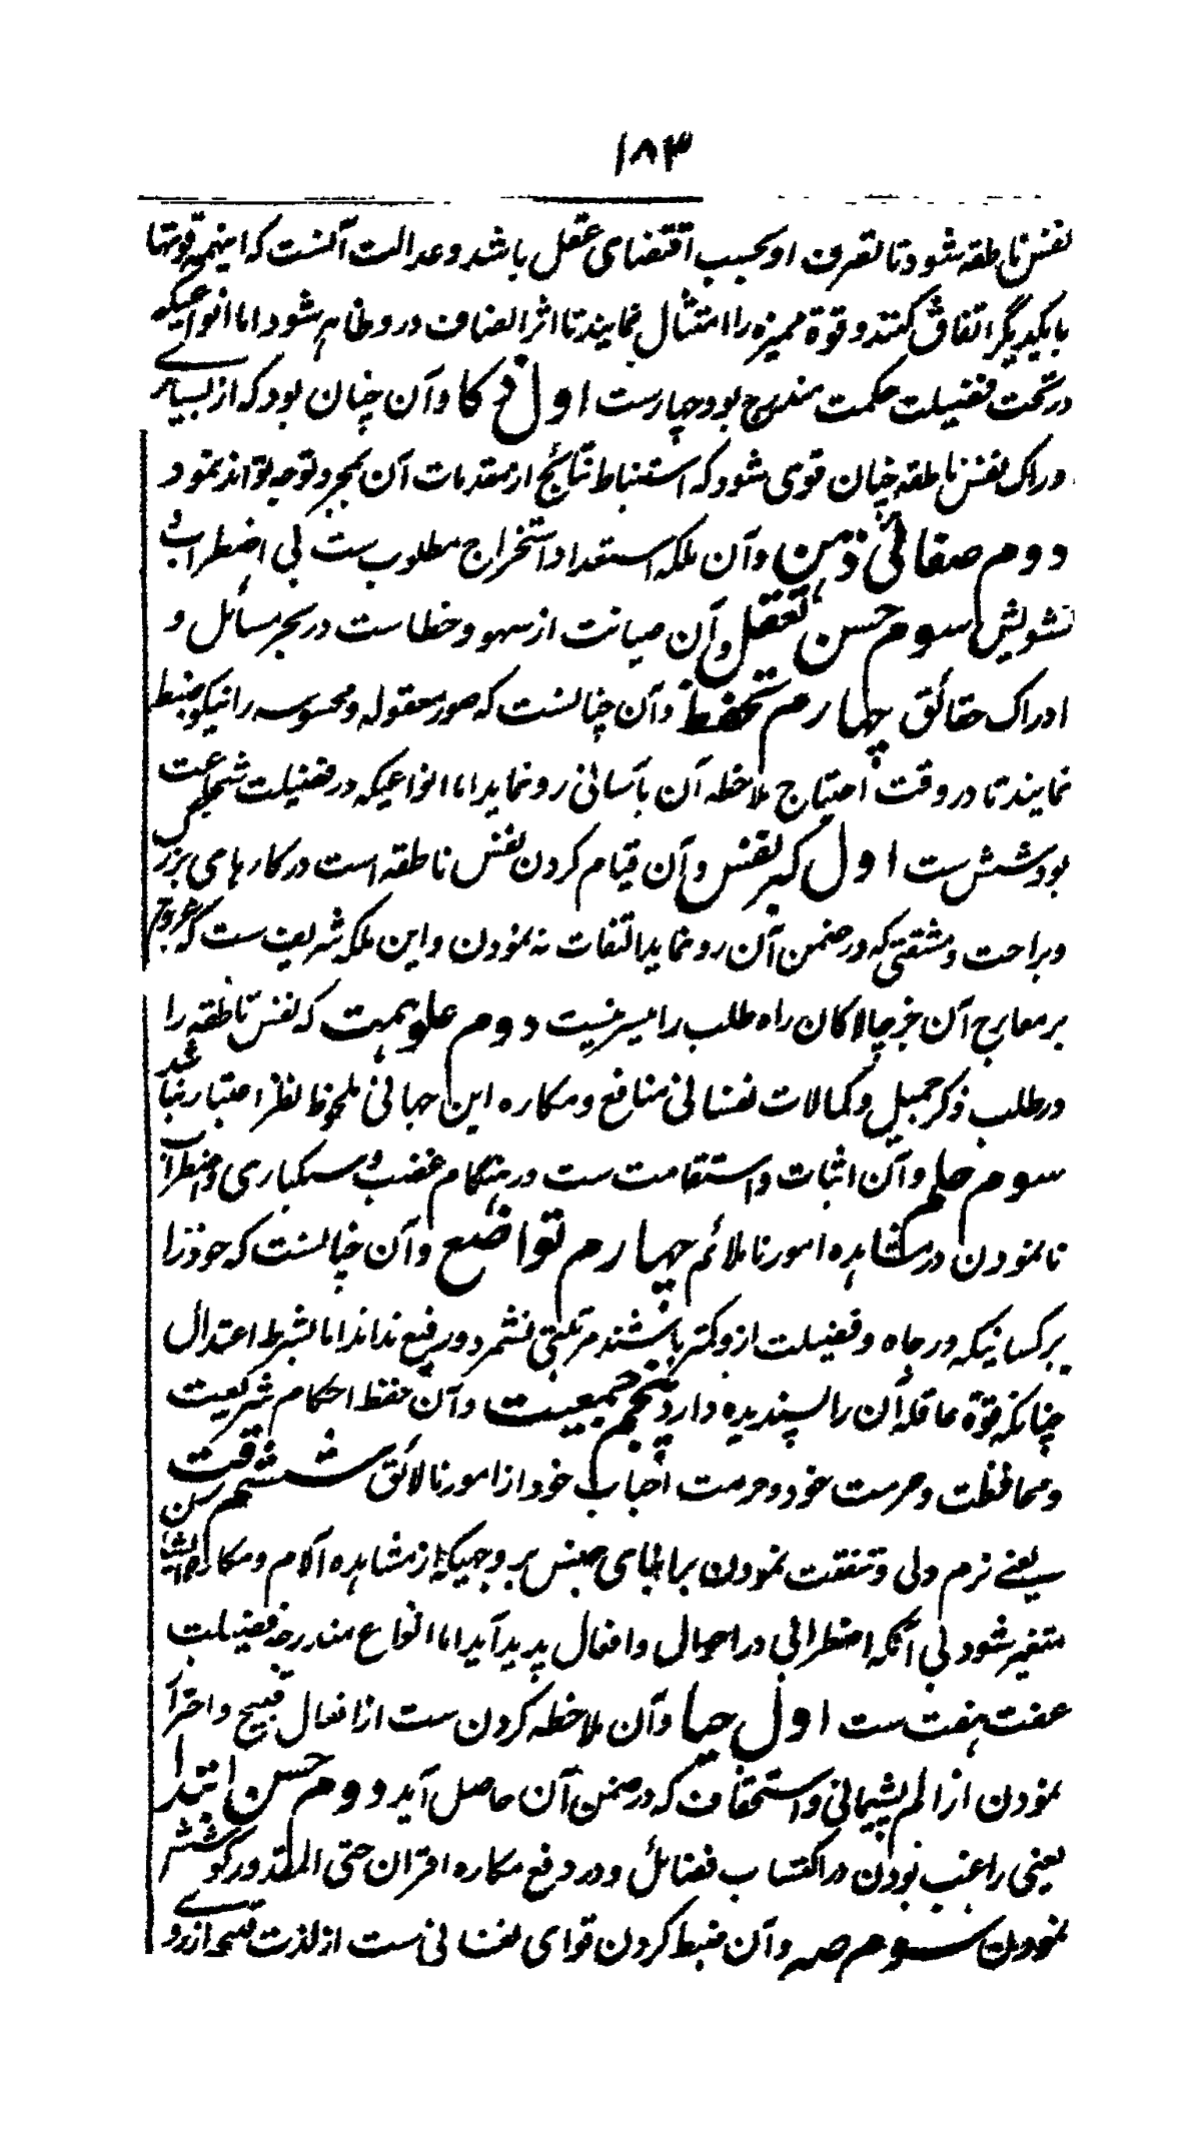 ۱۸۳
نفس ناطقه شود تا تصرف او بحسب اقتضای عقل باشد و عدالت آنست که اینهمه قوتها
بایکدیگر اتفاق کنند و قوة ممیزه را امتثال نمایند تا اثر انصاف درو ظاهر شود اما انواعیکه
در تحت فضیلت حکمت مندرج بود چهارست اول ذکا و آن چنان بود که از بسیاری
دراک نفس ناطقه چنان قوی شود که استنباط نتائج از مقدمات آن بمجرد توجه تواند نمود
دوم صفائی ذهن و آن ملکه استعداد استخراج مطلوب ست بی اضطراب و
تشویش سوم حسن تعقل و آن صیانت از سهو و خطاست در بحر مسائل و
ادراک حقائق چهارم تحفظ و آن چنانست که صور معقوله و محسوسه را نیکو ضبط
نمایند تا در وقت احتیاج ملاحظه آن بآسانی رو نماید اما انواعیکه در فضیلت شجاعت
بود شش ست اول کبر نفس و آن قیام کردن نفس ناطقه است در کارهای بزرگ
و براحت و مشقتی که در ضمن آن رو نماید التفات نه نمودن و این ملکه شریف ست که عروج
بر معارج آن جز چالاکان راه طلب را میسر نیست دوم علو همت که نفس ناطقه را
در طلب ذکر جمیل و کمالات نفسانی منافع و مکاره این جهانی ملحوظ نظر اعتبار نباشد
سوم حلم و آن اثبات و استقامت ست در هنگام غضب و سبکباری و اضطراب
نانمودن در مشاهده امور ناملائم چهارم تواضع و آن چنانست که خود را
بر کسانیکه در جاه و فضیلت ازو کمتر باشند مرتبتی نشمرد و رفیع نداند اما بشرط اعتدال
چنانکه قوة عاقله آن را پسندیده دارد پنجم حمیت و آن حفظ احکام شریعت
و محافظت و حرمت خود و حرمت احباب خود از امور نالائق ششم رقت
یعنے نرم دلی و شفقت نمودن بر ابنای جنس بر وجهیکه از مشاهده آلام و مکاره ایشان
متغیر شود بی آنکه اضطرابی در احوال و افعال پدید آید اما انواع مندرجه فضیلت
عفت هفت ست اول حیا و آن ملاحظه کردن ست از افعال قبیح و احتراز
نمودن از الم پشیمانی و استخفاف که در ضمن آن حاصل آید دوم حسن ابتدا
یعنی راغب بودن در اکتساب فضائل و در دفع مکاره اقران حتی المقدور کوشش
نمودن سوم صبر و آن ضبط کردن قوای نفسانی ست از لذت قبیحه از رو